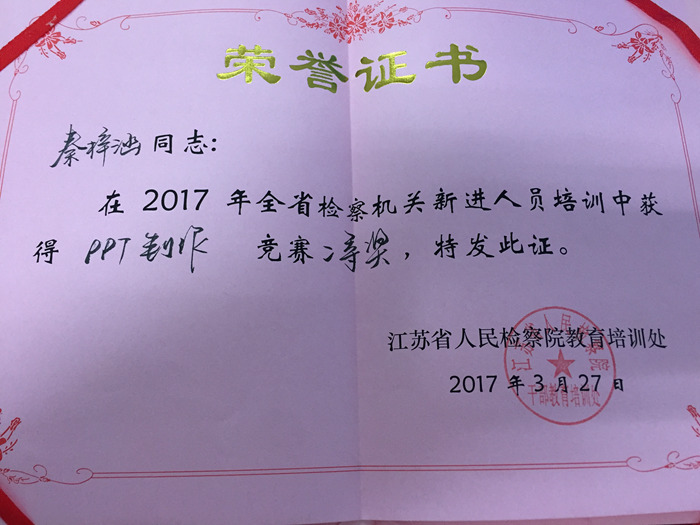 荣誉证书
秦梓涵同志：
在 2017 年全省检察机关新进人员培训中获
得 PPT制作 竞赛二等奖，特发此证。
江苏省人民检察院教育培训处
2017 年 3 月 27 日
江苏省人民检察院
干部教育培训处